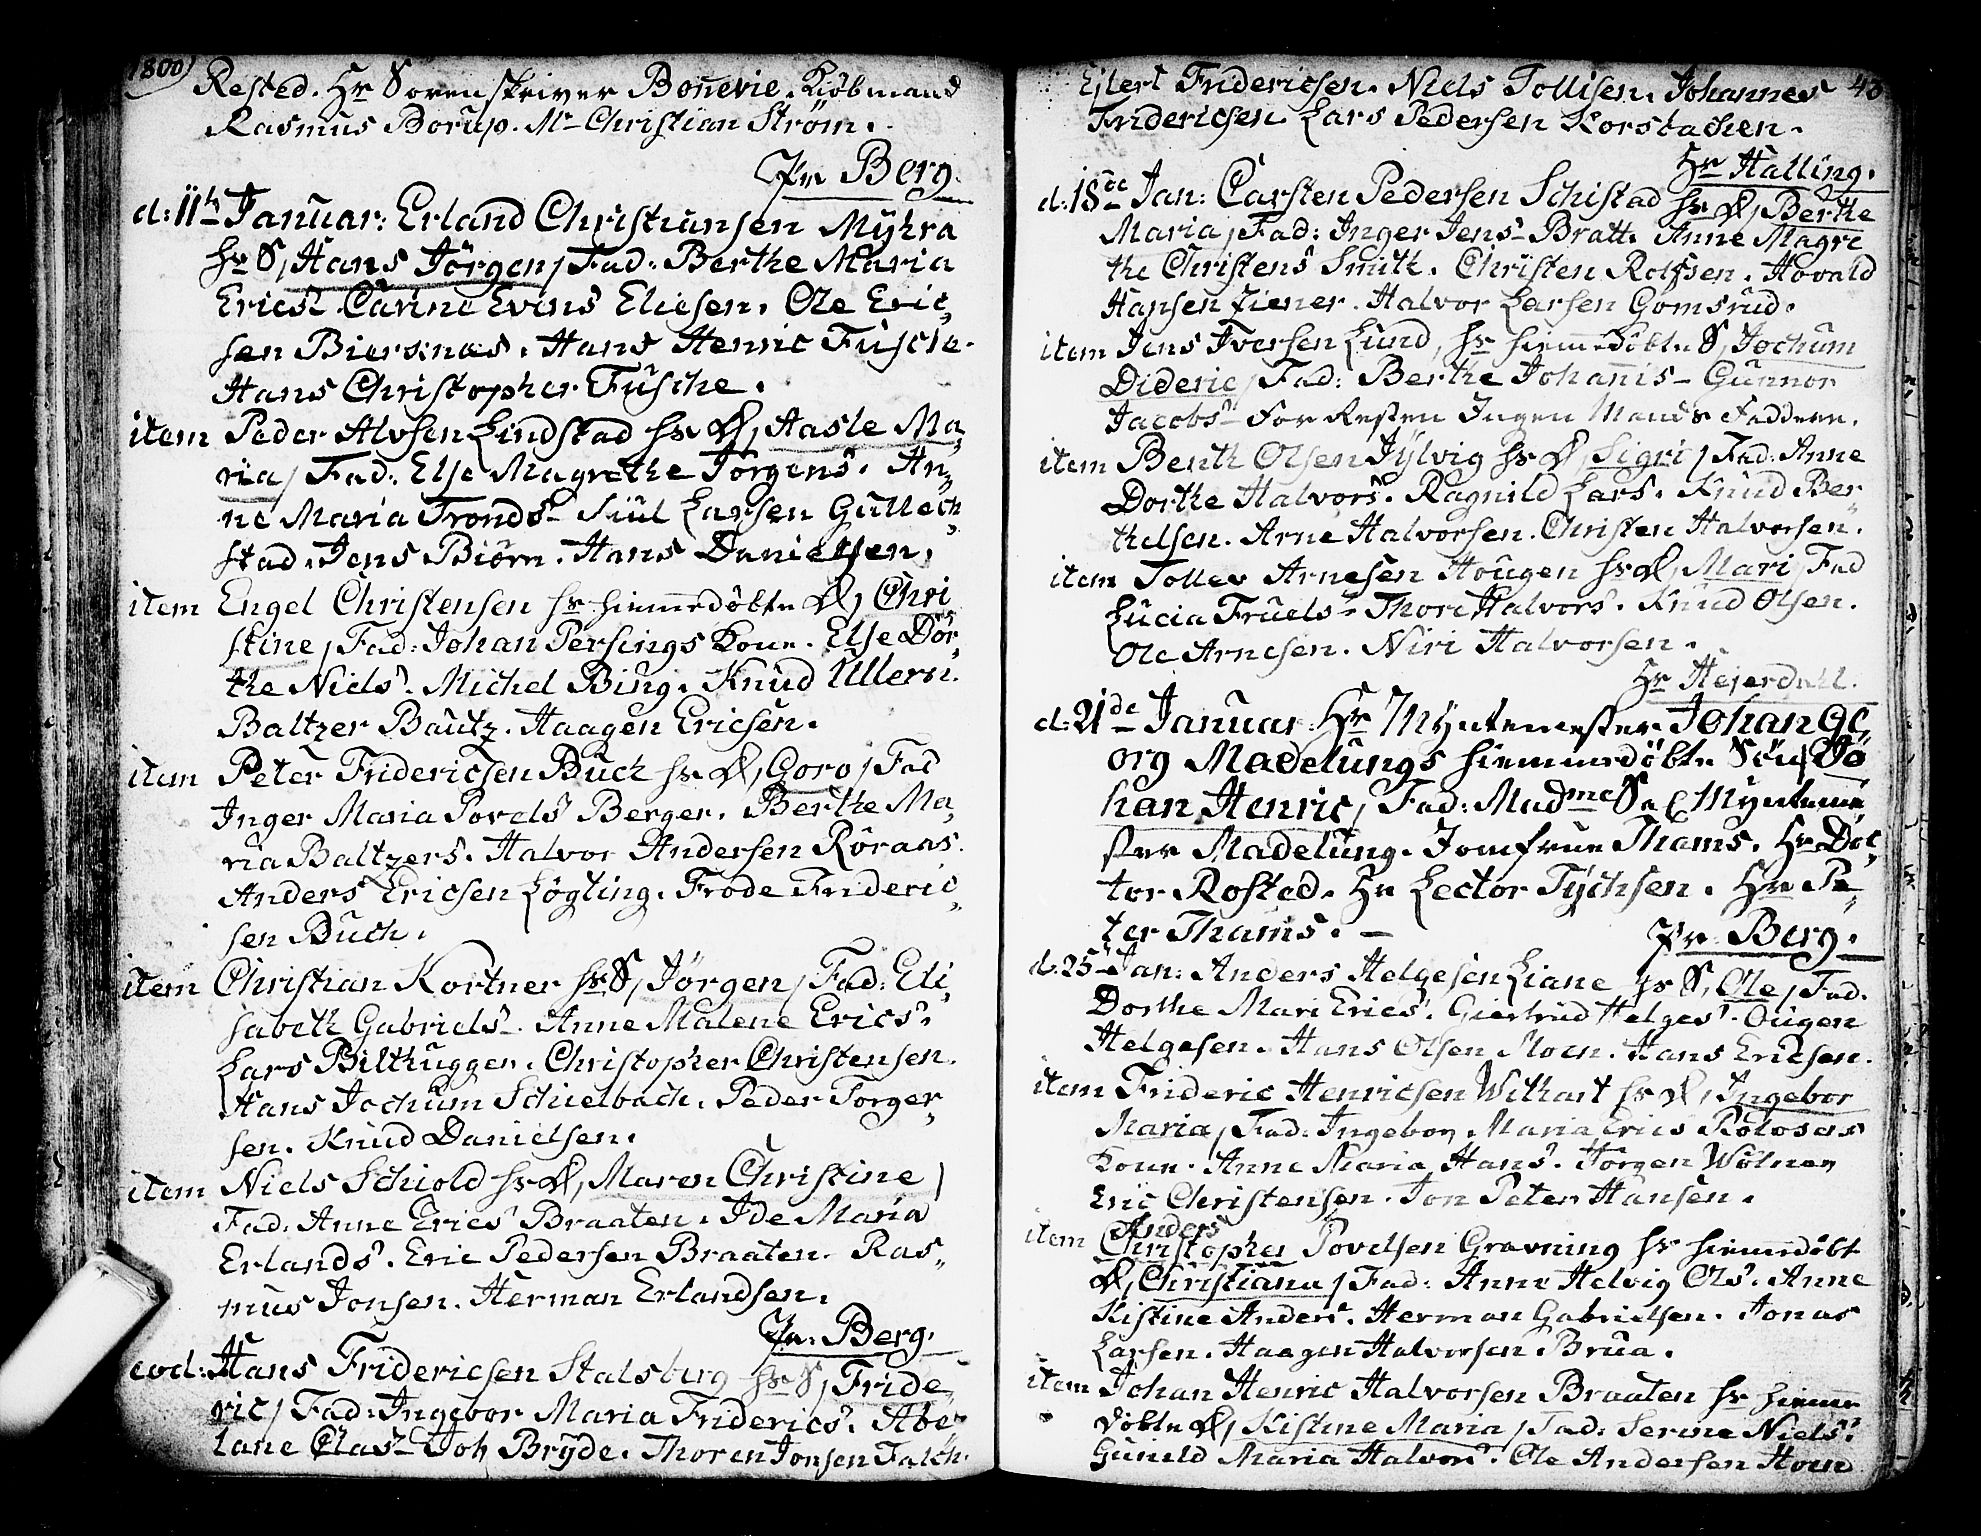 1800)
Rosted. Hr Sorenskriver Bonnevie. Kiöbmand
Rasmus Borup. Mr Christian Strøm.
Pr Berg.
d: 11te Januar: Erland Christiansen Myhra
hs S, Hans Jörgen, Fad: Berthe Maria
Erics. Carine Evens Eliesen. Ole Eric,,
sen Biersnæs. Hans Henric Fusche.
Hans Christopher Fusche.
item Peder Alvsen Lindstad hs D, Aasle Ma,,
ria, Fad: Else Magrethe Jörgens. An,,
ne Maria Tronds. Juul Larsen Gulleck,,
stad. Jens Biörn. Hans Danielsen.
item Engel Christensen hs hiemmedöbte D, Chri
stine, Fad: Johan Persings Kone. Else Dör,,
the Niels. Michel Bing. Knud Ullern.
Baltzer Bautz. Haagen Ericsen.
item Peter Fridericsen Buch hs D, Goro, Fad
Inger Maria Povels Berger. Berthe Ma,,
ria Baltzers. Halvor Andersen Röraas.
Anders Ericsen Lögling. Frode Frideric,,
sen Buch.
item Christian Kortner hs S, Jörgen, Fad: Eli,,
sabeth Gabriels. Anne Malene Erics.
Lars Bilthugger. Christopher Christensen.
Hans Jochum Schielbach. Peder Torger,,
sen. Knud Danielsen.
item Niels Schiold hs D, Maren Christine,
Fad: Anne Erics Braaten. Ide Maria
Erlands. Eric Pedersen Braaten. Ras,,
mus Jonsen. Herman Erlandsen.
Pr. Berg.
eod: Hans Fridericsen Stalsberg hs S, Fride,,
ric, Fad: Ingebor Maria Friderics. Abe,,
lane Clas. Joh Bryde. Thoren Jonsen Falch.
48
Ejlert Fridericsen. Niels Tollisen. Johannes
Fridericsen. Lars Pedersen Korsbachen.
Hr Halling.
d: 18de Jan: Carsten Pedersen Schistad hs D, Berthe
Maria, Fad: Inger Jens Bratt. Anne Magre
the Christens Smith. Christen Rolfsen. Hovald
Hansen Ziener. Halvor Larsen Gomsrud.
item Jens Iversen Lund, hs hiemmedöbte S, Jochum
Dideric, Fad: Berthe Johannis. Gunnor
Jacobs. For Resten Ingen Mands Faddere.
item Benth Olsen Jylvig hs D, Sigri, Fad: Anne
Dorthe Halvors. Ragnild Lars. Knud Ber,,
thelsen. Arne Halvorsen. Christen Halvorsen.
item Tollev Arnesen Hougen hs D, Mari, Fad
Lucia Truels. Thore Halvors. Knud Olsen.
Ole Arnesen. Niri Halvorsen.
Hr Hejerdahl.
d: 21de Januar. Hr Myntemester Johan Ge,,
org Madelungs hiemmedöbte Sön, Jo
han Henric, Fad: Madme Sal Myntme
ster Madelung. Jomfrue Thams. Hr Doc,,
tor Rosted. Hr Lector Tychsen. Hr Pe,,
ter Thams. –
Pr. Berg.
d. 25 Jan: Anders Helgesen Liane hs S, Ole, Fad.
Dorthe Mari Erics. Giertrud Helges. Ougen
Helgesen. Hans Olsen Moen. Hans Ericsen.
item Frideric Henricsen Withart hs D, Ingebor
Maria, Fad: Ingebor Maria Erics
Kone. Anne Maria Hans. Jörgen Wölner
Eric Christensen. Jon Peter Hansen.
Anders
item Christopher Povelsen Gravning hs hiemmedöbt
D, Christiana, Fad: Anne Helvig Ols. Anne
Kistine Anders. Herman Gabrielsen. Jonas
Larsen. Haagen Halvorsen Brua.
item Johan Henric Halvorsen Braaten hs hiemme
döbte D, Kistine Maria, Fad: Serine Niels.
Gunild Maria Halvors. Ole Andersen Hoen